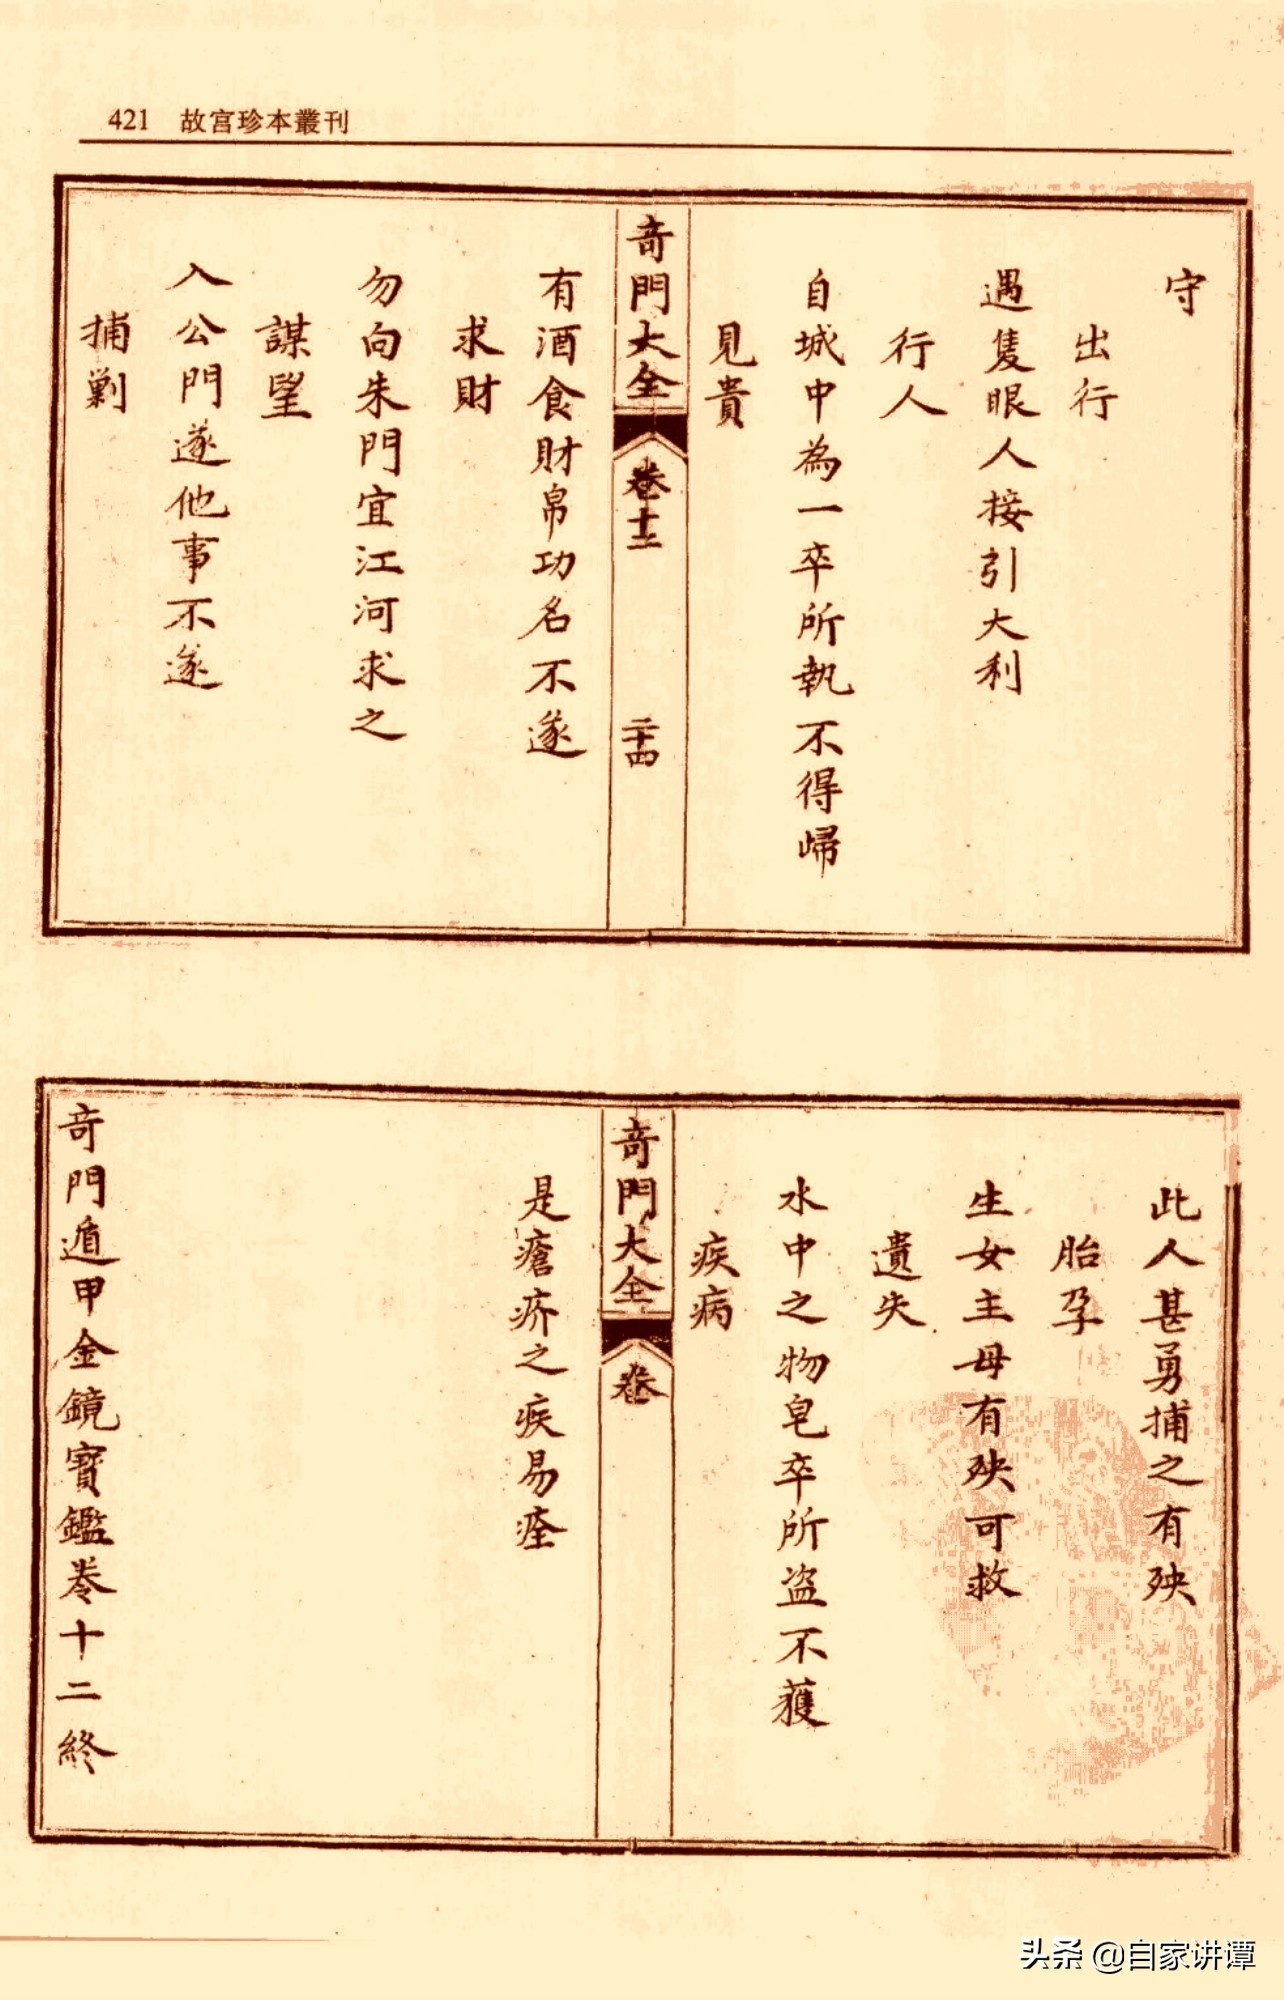 421 故宮珍本叢刊
守
出行
遇隻眼人接引大利
行人
自城中為一卒所執不得歸
見貴
奇門大全 卷十二 二十四
有酒食財帛功名不遂
求財
勿向朱門宜江河求之
謀望
入公門遂他事不遂
捕剿
此人甚勇捕之有殃
胎孕
生女主母有殃可救
遺失
水中之物皂卒所盜不獲
疾病
奇門大全 卷
是瘡疥之疾易痊
奇門遁甲金鏡寶鑑卷十二終
头条 @自家讲谭